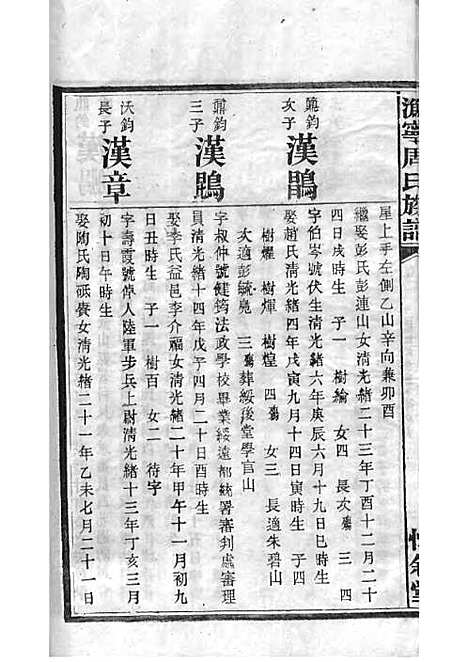 寧周氏族譜
星上手左側乙山辛向兼卯酉
繼娶彭氏彭連山女清光緒二十三年丁酉十二月二十
四日戌時生 子一 樹綸 女四 長次殤 三 四
鼐鈞次子
漢鵑
字伯岑號伏生清光緒六年庚辰六月十九日巳時生
娶趙氏清光緒四年戊寅九月十四日寅時生 子四
樹燿 樹煇 樹煌 四殤 女三 長適朱碧山
次適彭毓 三殤葬綏後堂學官山
鼐鈞三子
漢鵰
字叔仲號健筠法政學校畢業綏遠都統署審判處審理
員清光緒十四年戊子四月二十日酉時生
娶李氏益邑李介福女清光緒二十年甲午十一月初九
日丑時生 子一 樹百 女二 待字
沃鈞長子
漢章
字壽霞號倬人陸軍步兵上尉清光緒十三年丁亥三月
初十日午時生
娶陶氏陶砥賡女清光緒二十一年乙未七月二十一日